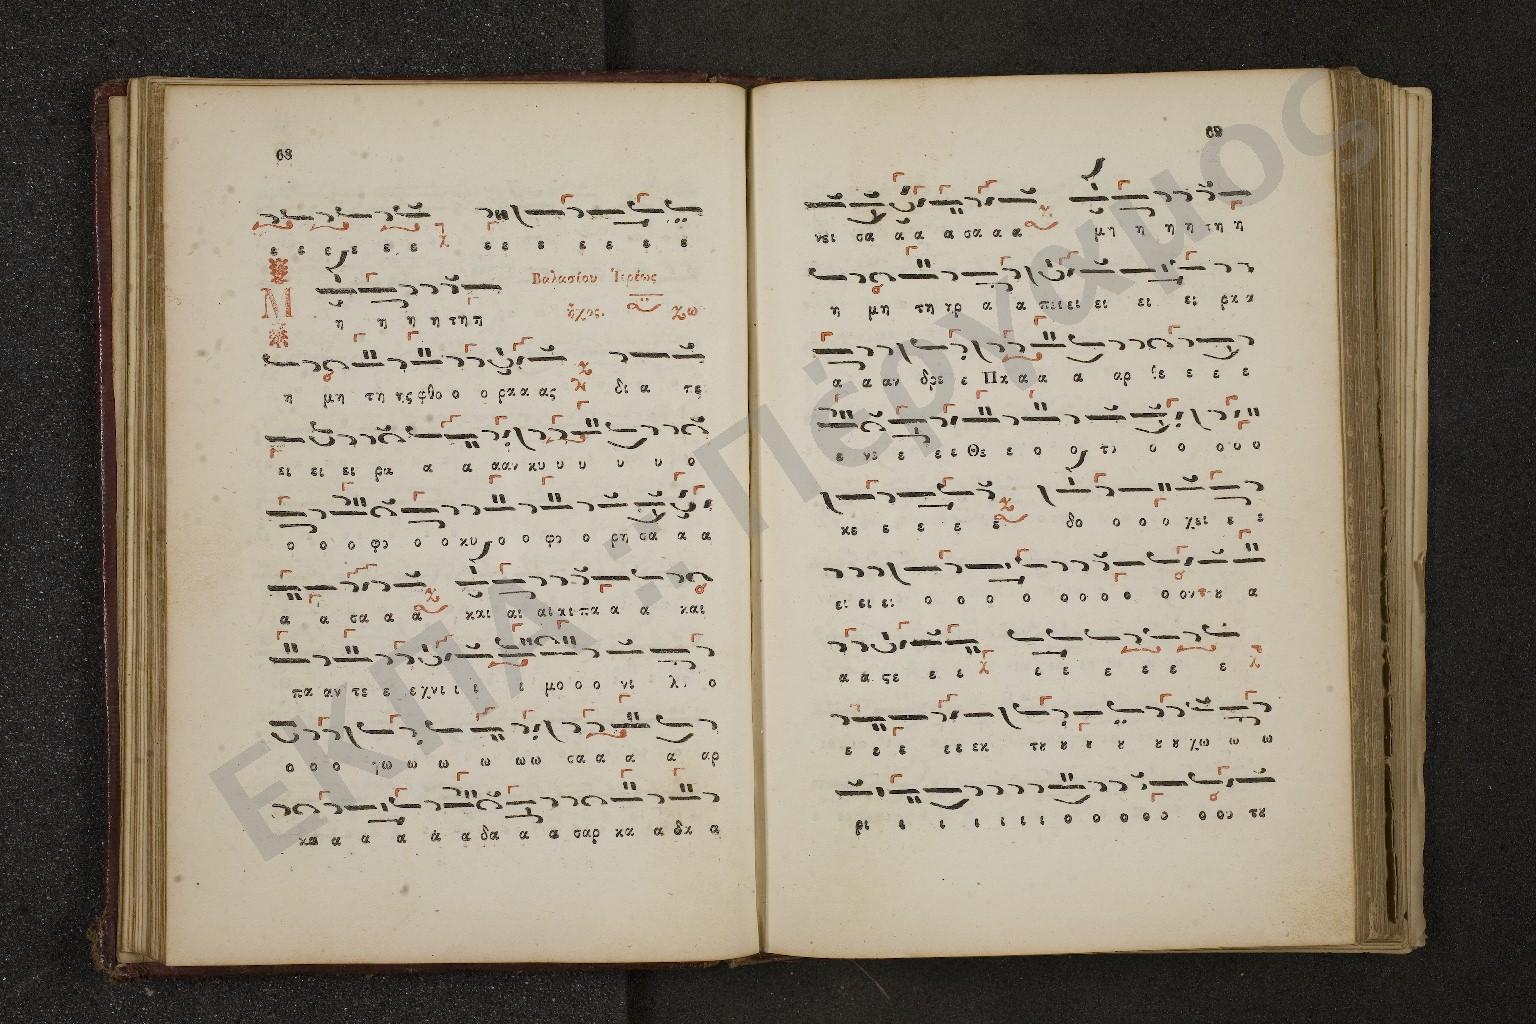 68
ε ε ε ε ε ε ε ε ε ε ε ε ε
Βαλασίου Ἱερέως
Μ η η η η τη η ἦχος.
η μη τη ης φθο ο ο ρα α ας δι α τε
ει ει ει ρα α α ααν κυ υ υ υ υ ο
ο ο ο φο ο ο κυ ο ο φο ο ρη σα α α
α α σα α α και αι αι κι πα α α και
πα αν τε ε εχνι ι ι ι μο ο ο νι λο ο
ο ο ο γω ω ω ω ωω σα α α α αρ
κα α α α ά α δα α α σαρ κα α δκ α
69
νει σα α α α σα α α μη η η η τη η
η μη τη ηρ α α πειει ει ει ει ρα α
α α αν δρε ε Πα α α α αρ θε ε ε ε
ε νε ε εε Θε ε ο ο το ο ο ο ο ο
κε ε ε ε ε δο ο ο ο χει ε ε
ει ει ει ο ο ο ο ο ο ο ο ο ον τȣ α
α α ςε ε ε ε ε ε ε ε ε
ε ε ε εε εκ τȣ ȣ ȣ ȣ ȣ ȣ χω ω ω
ρι ι ι ι ι ι ο ο ο ο ο ο ου τȣ
ΕΚΠΑ :: Πέργαμος